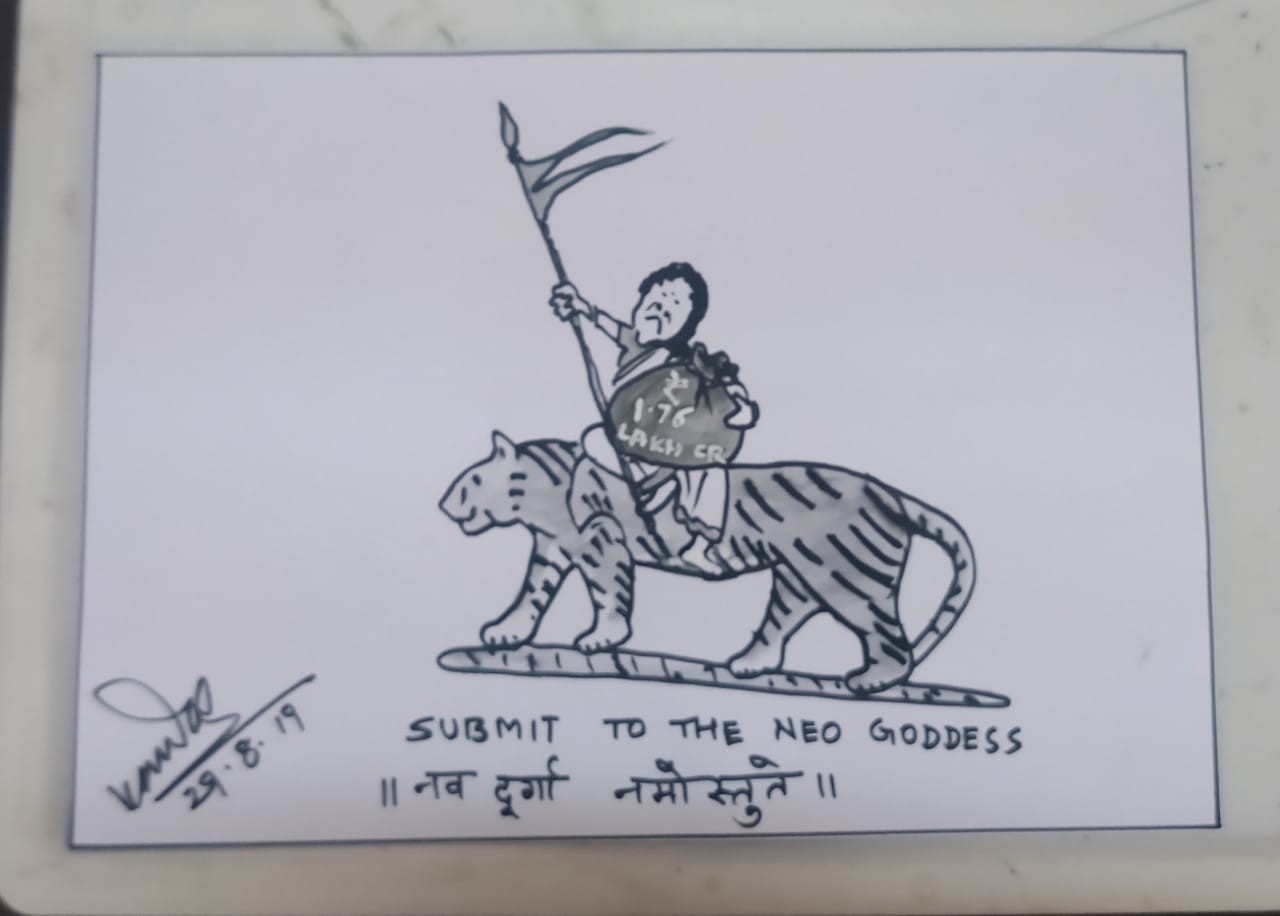 ₹
1.76
LAKH CR
SUBMIT TO THE NEO GODDESS
॥ नव दूर्गा नमोस्तुते ॥
29.8.19